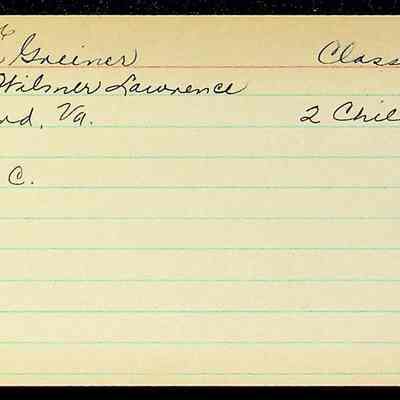 Greiner Class
Wilmer Lawrence
nd, Va. 2 Chil
C.